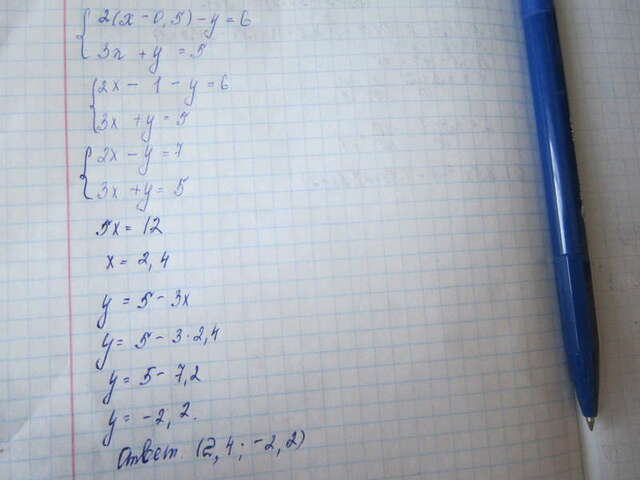 2(x - 0,5) - y = 6
3x + y = 5
2x - 1 - y = 6
3x + y = 5
2x - y = 7
3x + y = 5
5x = 12
x = 2,4
y = 5 - 3x
y = 5 - 3·2,4
y = 5 - 7,2
y = -2,2.
Ответ. (2,4; -2,2)